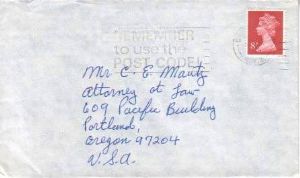 REMEMBER
to use the
POST CODE
8P
Mr C. E. Mautz
Attorney at Law
609 Pacific Building
Portland,
Oregon 97204
U.S.A.